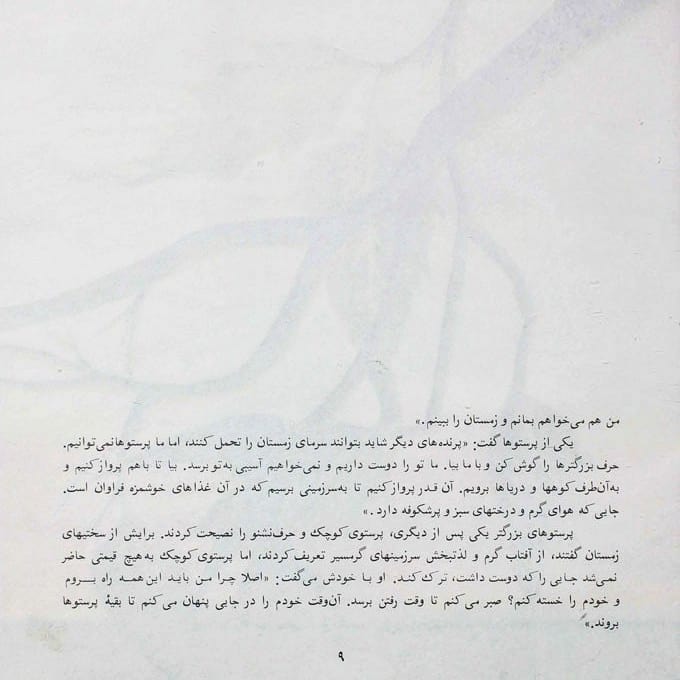 من هم می‌خواهم بمانم و زمستان را ببینم.»
یکی از پرستوها گفت: «پرنده‌های دیگر شاید بتوانند سرمای زمستان را تحمل کنند، اما ما پرستوها نمی‌توانیم.
حرف بزرگترها را گوش کن و با ما بیا. ما تو را دوست داریم و نمی‌خواهیم آسیبی به تو برسد. بیا تا باهم پرواز کنیم و
به آن‌طرف کوهها و دریاها برویم. آن قدر پرواز کنیم تا به سرزمینی برسیم که در آن غذاهای خوشمزه فراوان است.
جایی که هوای گرم و درختهای سبز و پرشکوفه دارد.»
پرستوهای بزرگتر یکی پس از دیگری، پرستوی کوچک و حرف‌نشنو را نصیحت کردند. برایش از سختیهای
زمستان گفتند، از آفتاب گرم و لذتبخش سرزمینهای گرمسیر تعریف کردند، اما پرستوی کوچک به هیچ قیمتی حاضر
نمی‌شد جایی را که دوست داشت، ترک کند. او با خودش می‌گفت: «اصلا چرا من باید این همه راه بروم
و خودم را خسته کنم؟ صبر می‌کنم تا وقت رفتن برسد. آن‌وقت خودم را در جایی پنهان می‌کنم تا بقیهٔ پرستوها
بروند.»
۹